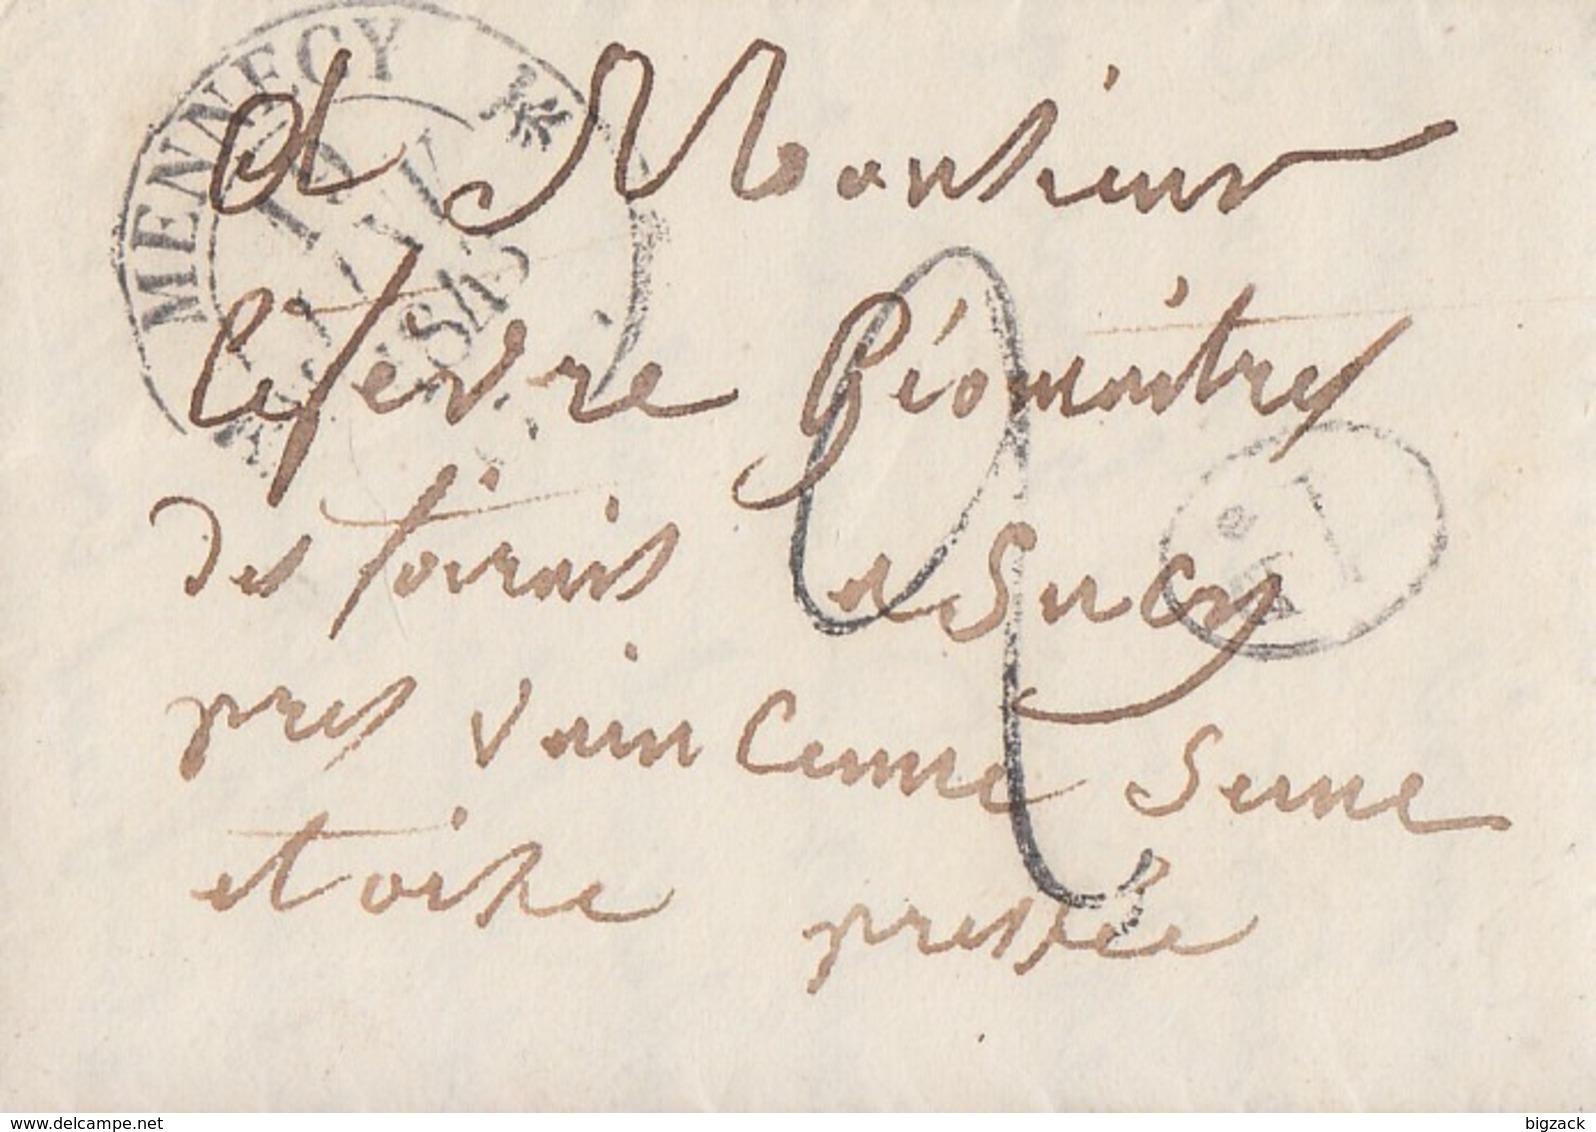 MENNECY
19
1845
A Monsieur
Lefevre Géomaitres
des forrais a Sucy
pres Vain Cenne Seine
et oise
pressée
delcampe.net
bigzack